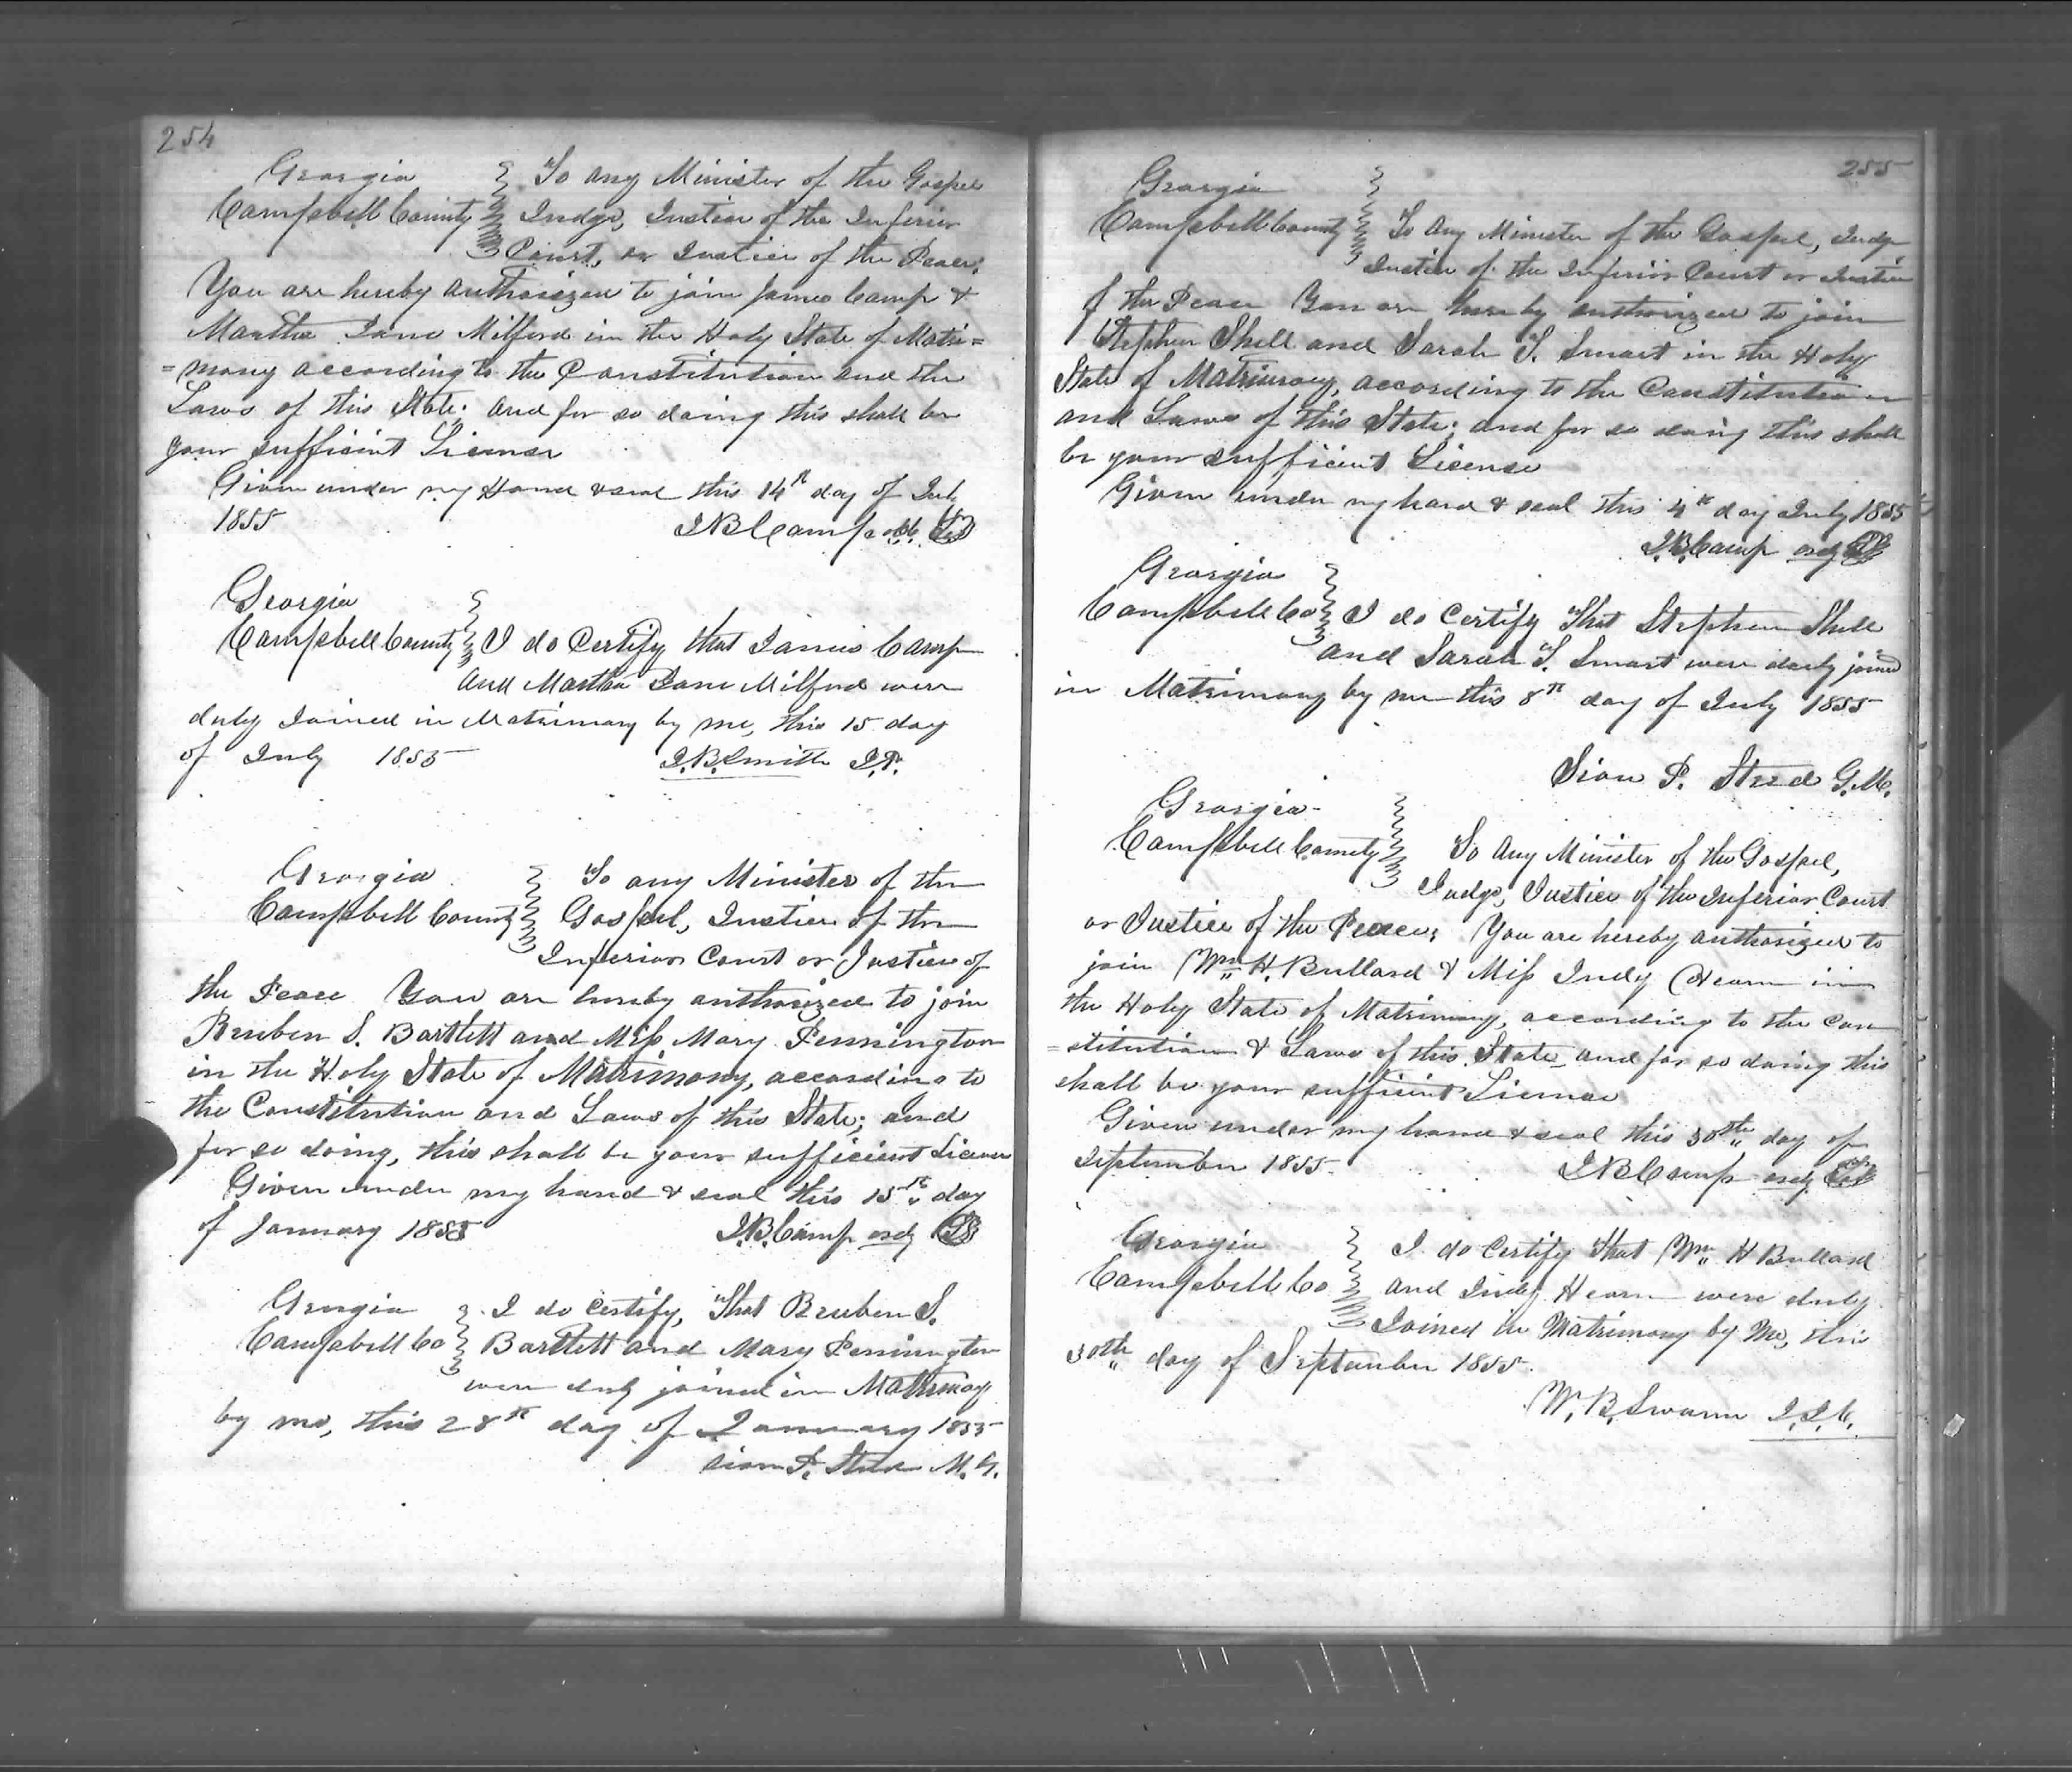 254
Georgia
Campbell County
To any Minister of the Gospel
Judge, Justice of the Inferior
Court, or Justice of the Peace;
You are hereby authorized to join James Camp &
Martha Jane Milford in the Holy State of Matri=
=mony according to the Constitution and the
Laws of this State; and for so doing this shall be
your sufficient License
Given under my Hand & seal this 14th day of July
1855
J B Camp
Georgia
Campbell County
I do Certify that James Camp
and Martha Jane Milford were
duly Joined in Matrimony by me, this 15 day
of July 1855
J. B. Smith J.P.
Georgia
Campbell County
To any Minister of the
Gospel, Justice of the
Inferior Court or Justice of
the Peace You are hereby authorized to join
Reuben S. Bartlett and Miss Mary Pennington
in the Holy State of Matrimony, according to
the Constitution and Laws of this State; and
for so doing, this shall be your sufficient License
Given under my hand & seal this 15th day
of January 1855
J. B. Camp ordy LS
Georgia
Campbell Co
I do certify, That Reuben S.
Bartlett and Mary Pennington
were duly joined in Matrimony
by me, this 28th day of January 1855
Sion P. Steed M. G.
255
Georgia
Campbell County
To any Minister of the Gospel, Judge
Justice of the Inferior Court or Justice
of the Peace You are hereby authorized to join
Stephen Shell and Sarah T. Smart in the Holy
State of Matrimony, according to the Constitution
and Laws of this State; and for so doing this shall
be your sufficient License
Given under my hand & seal this 4th day July 1855
J. B. Camp ordy LS
Georgia
Campbell Co
I do Certify That Stephen Shell
and Sarah T. Smart were duly joined
in Matrimony by me this 8th day of July 1855
Sion P. Steed G. M.
Georgia
Campbell County
To Any Minister of the Gospel,
Judge, Justice of the Inferior Court
or Justice of the Peace; You are hereby authorized to
join Wm H. Bullard & Miss Indy Hearn in
the Holy State of Matrimony, according to the Con
=stitution & Laws of this State and for so doing this
shall be your sufficient License
Given under my hand & seal this 30th day of
September 1855.
J B Camp ordy LS
Georgia
Campbell Co
I do Certify That Wm H Bullard
and Indy Hearn were duly
Joined in Matrimony by Me, this
30th day of September 1855.
W. B. Swann J. I. C.